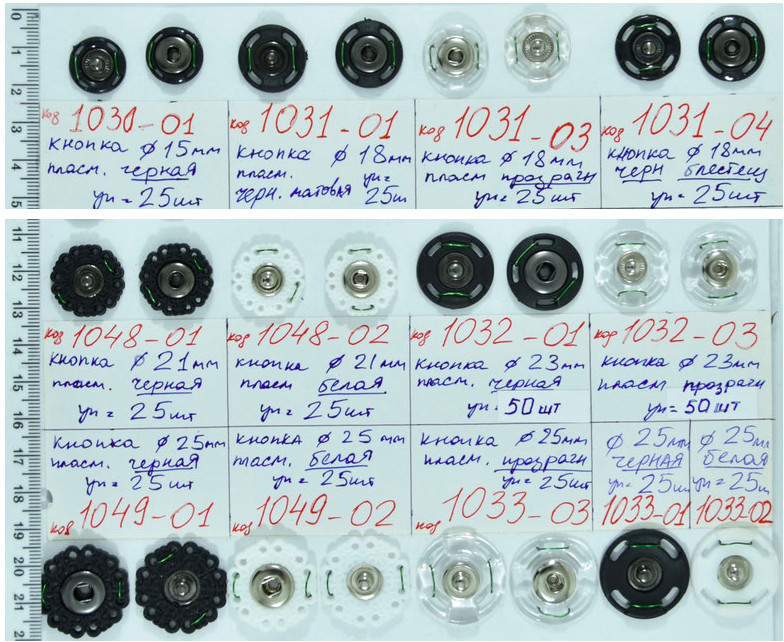 0
1
2
3
4
5
код 1030-01
кнопка φ 15мм
пласм. черная
уп = 25шт
код 1031-01
кнопка φ 18мм
пласм.
черн. матовая уп=
25ш
код 1031-03
кнопка φ 18мм
пласм прозрачн
уп = 25шт
код 1031-04
кнопка φ 18мм
черн блестещ
уп = 25шт
11
12
13
14
15
16
17
18
19
20
21
2
код 1048-01
кнопка φ 21мм
пласм. черная
уп = 25шт
код 1048-02
кнопка φ 21мм
пласм белая
уп = 25шт
код 1032-01
кнопка φ 23мм
пласм. черная
уп = 50 шт
код 1032-03
кнопка φ 23мм
пласм прозрачн
уп = 50 шт
кнопка φ 25мм
пласм. черная
уп = 25шт
код 1049-01
кнопка φ 25 мм
пласм. белая
уп = 25шт
код 1049-02
кнопка φ 25мм
пласм. прозрачн
уп = 25шт
код 1033-03
φ 25мм
черная
уп = 25ш
1033-01
φ 25м
белая
уп = 25ш
1033-02